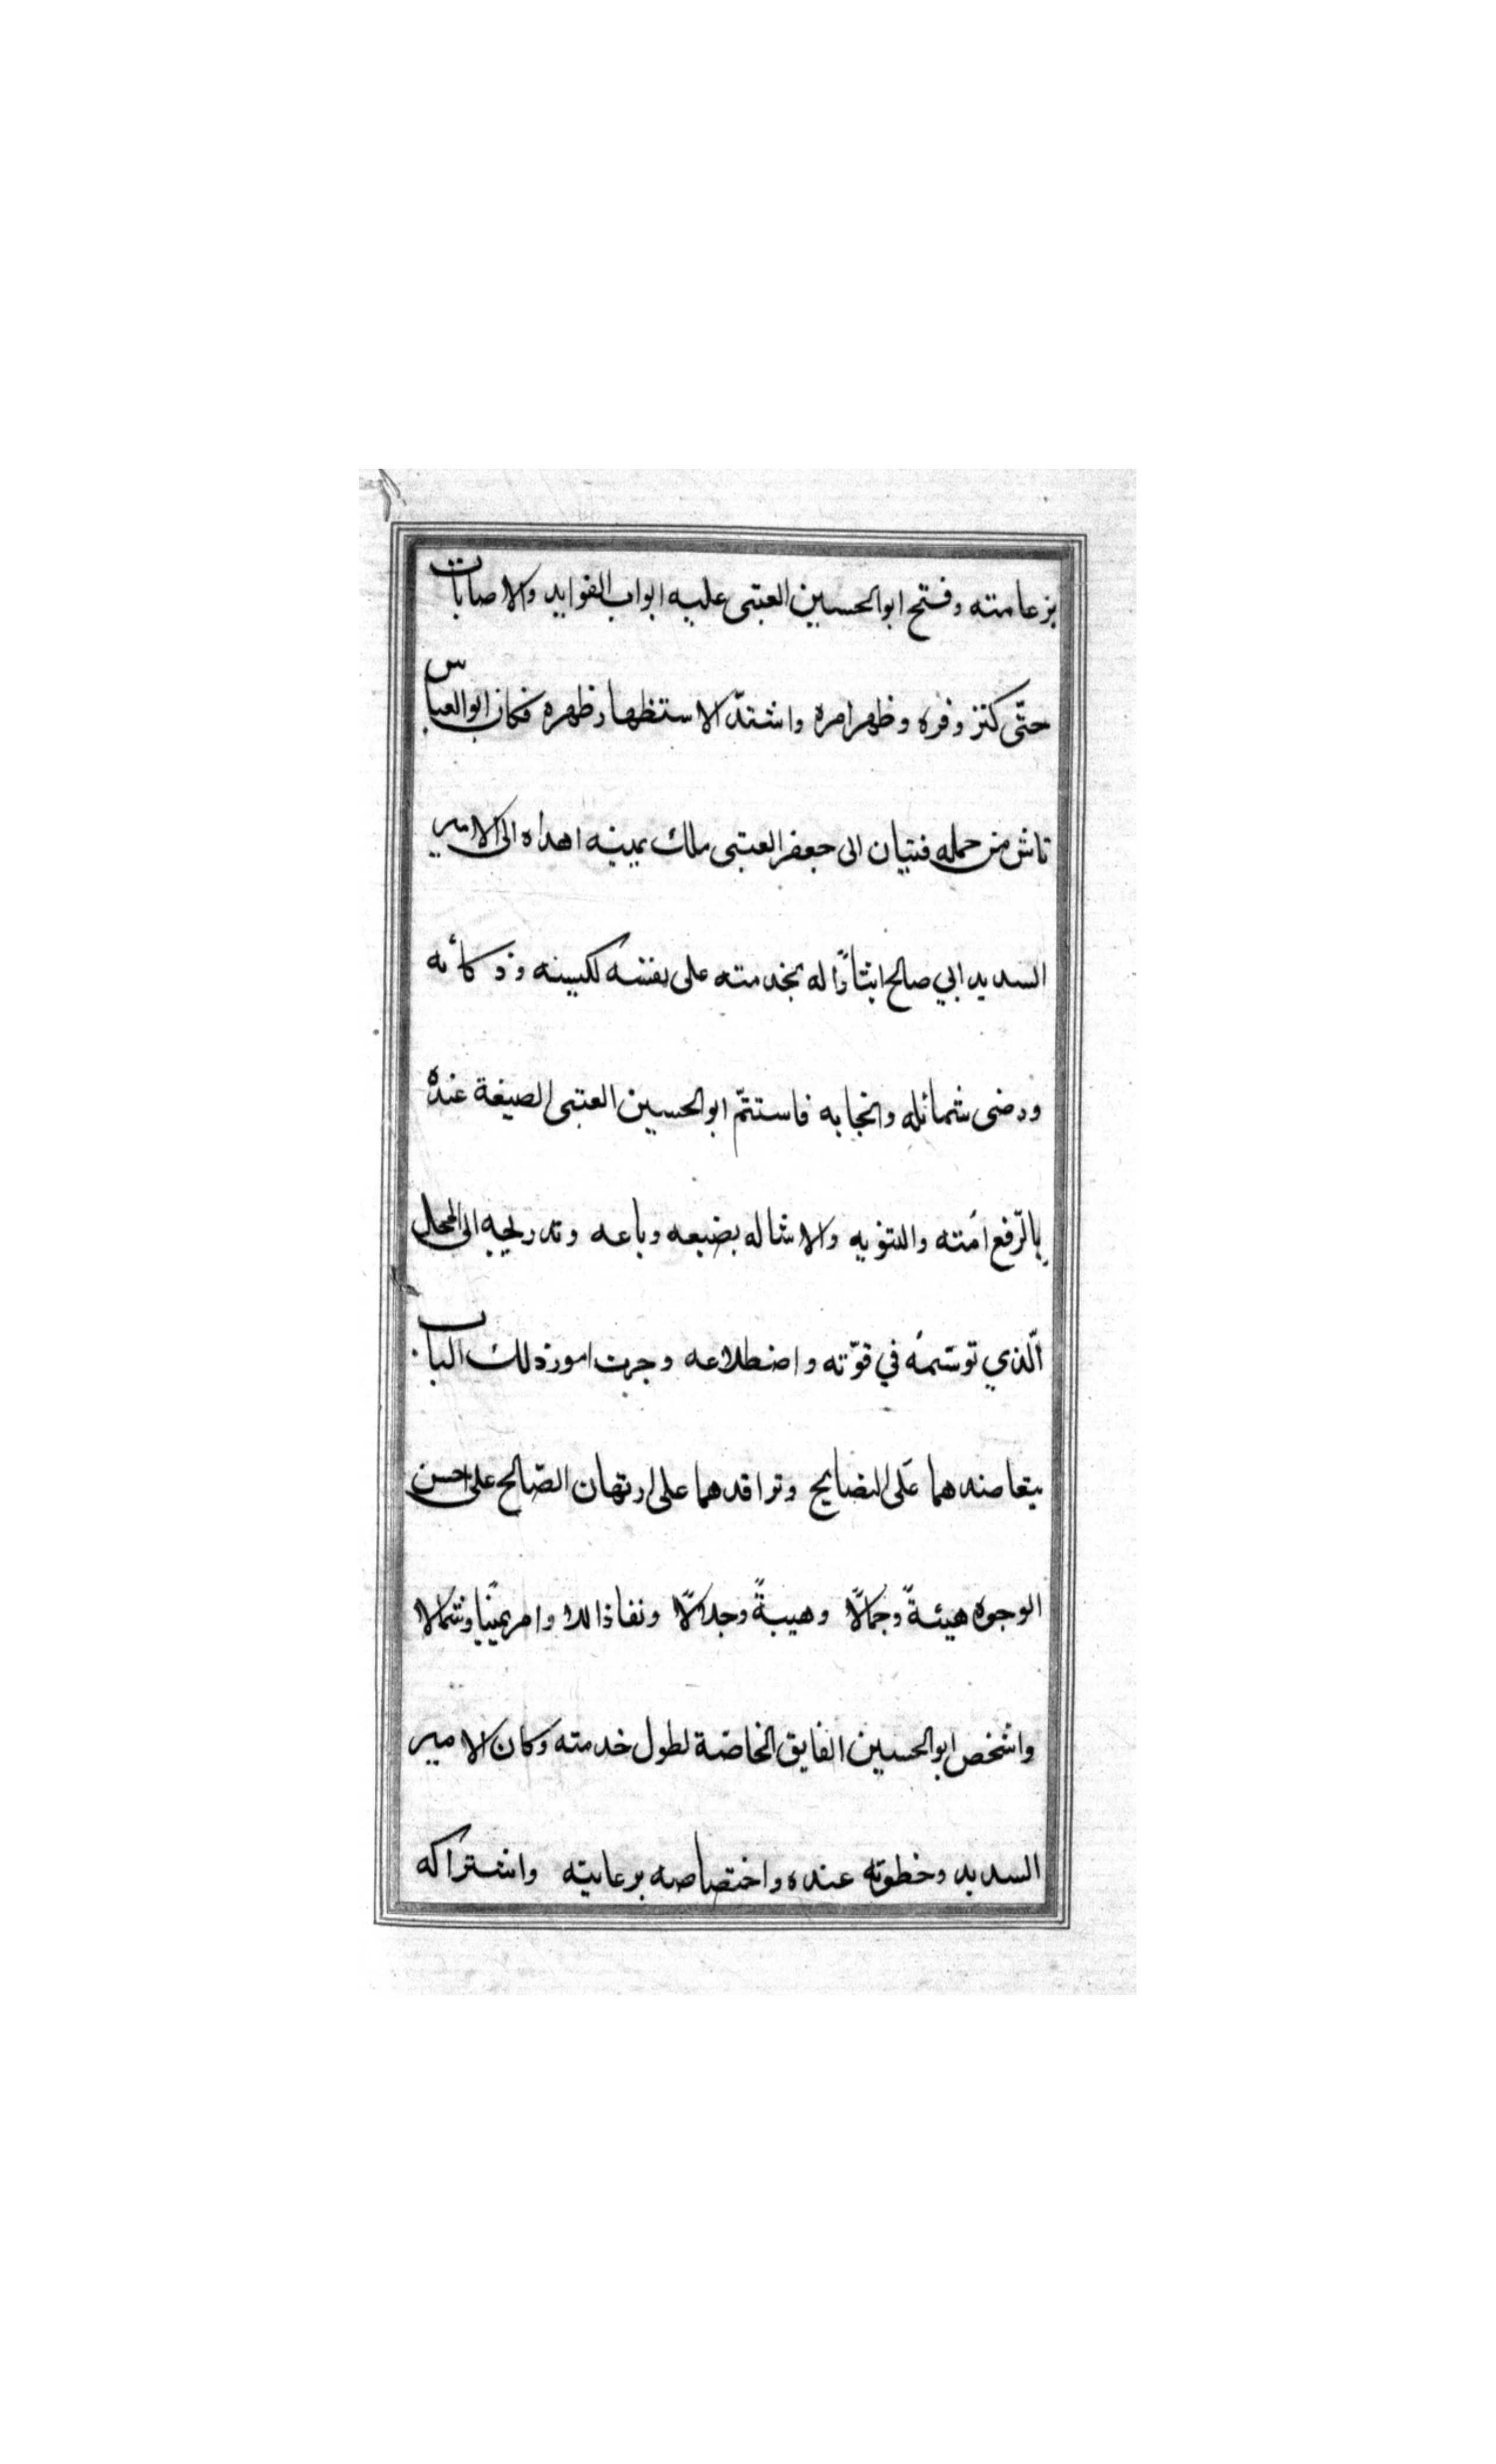 بزعامته وفتح ابوالحسين العتبى عليه ابواب الفوايد والاصابات
حتّى كنز وفره وظهر امره واشتدّ الاستظهار ظهره فكان ابوالعباس
تاش من حمله فتيان الى جعفر العتبى ملك يمينه اهداه الى الامير
السديد ابي صالح ايثارًا له بخدمته على نفسه لكيسه وذكائه
ورضى شمائله وانجابه فاستتمّ ابوالحسين العتبى الصيغة عنده
بالرّفع امَته والتنويه والاشاله بضبعه وباعه وتدريجه الى المحل
الّذي توسّمهُ في قوّته واضطلاعه وجرت امور ذلك الباب
بتعاضدهما عَلى النضايح وترافدهما على ارتهان الصّالح على احسن
الوجوه هيئةً وجمالًا وهيبةً وجلالًا ونفاذا للاوامر يمينًا وشمالا
واشخص ابوالحسين الفايق الخاصّة لطول خدمته وكان الامير
السديد وخطوته عنده واختصاصه برعايته واشتراكه